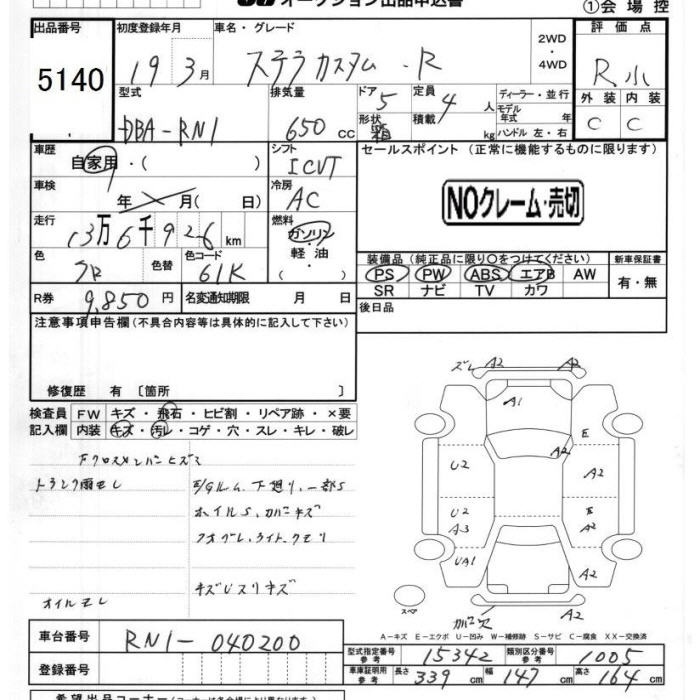 オークション出品申込書
①会場控
出品番号
5140
初度登録年月
19 3月
車名・グレード
ステラカスタム ・R
2WD
・
4WD
評価点
R小
外装 内装
C C
型式
DBA-RN1
排気量
650 cc
ドア
5
形状
箱
定員
4 人
積載
kg
ディーラー・並行
モデル
年式 年
ハンドル 左・右
車歴
自家用・( )
シフト
ICVT
セールスポイント (正常に機能するものに限ります)
NOクレーム・売切
車検
年 月( 日)
冷房
AC
走行
13万6千926km
燃料
ガソリン
・
軽油
・
( )
色
色替
色コード
61K
装備品(純正品に限り○をつけてください)
PS PW ABS エアB AW
SR ナビ TV カワ
新車保証書
有・無
R券
9,850円
名変通知期限 月 日
後日品
注意事項申告欄(不具合内容等は具体的に記入して下さい)
修復歴 有〔箇所 〕
検査員
記入欄
FW キズ・飛石・ヒビ割・リペア跡・×要
内装 キズ・汚レ・コゲ・穴・スレ・キレ・破レ
Fクロスメンバーヒズミ
トランク雨モレ
E/Gルーム、下廻り、一部S
ホイルS、カバーキズ
フォグレ、ライト、クモリ
キズUスリキズ
オイルモレ
ズレ A2 A2
A1
E
A2
U2
A2
U2
E
A3
A2
UA1
A2
スペア
カバー欠
A2
A-キズ E-エクボ U-凹み W-補修跡 S-サビ C-腐食 XX-交換済
車台番号
RN1-040200
登録番号
型式指定番号
参考
15342
類別区分番号
参考
1005
車庫証明用
参考
長さ 339cm
幅 147cm
高さ 164cm
希望出品コーナー